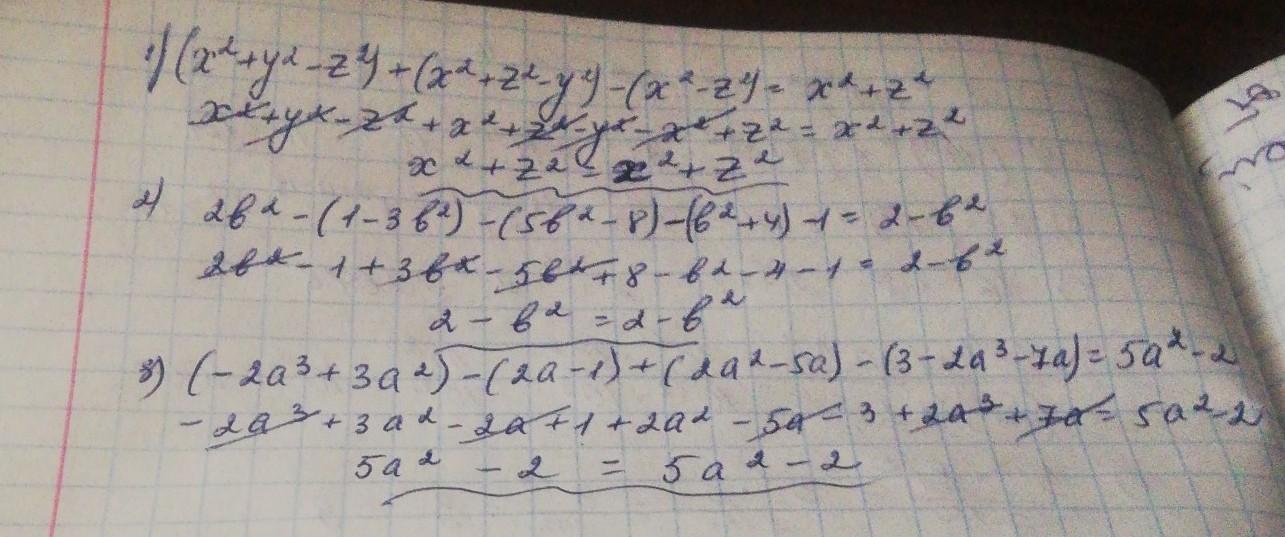 1) (x² + y² - z²) + (x² + z² - y²) - (x² - z²) = x² + z²
x² + y² - z² + x² + z² - y² - x² + z² = x² + z²
x² + z² = x² + z²
2) 2в² - (1 - 3в²) - (5в² - 8) - (в² + 4) - 1 = 2 - в²
2в² - 1 + 3в² - 5в² + 8 - в² - 4 - 1 = 2 - в²
2 - в² = 2 - в²
3) (-2a³ + 3a²) - (2a - 1) + (2a² - 5a) - (3 - 2a³ - 7a) = 5a² - 2
-2a³ + 3a² - 2a + 1 + 2a² - 5a - 3 + 2a³ + 7a = 5a² - 2
5a² - 2 = 5a² - 2